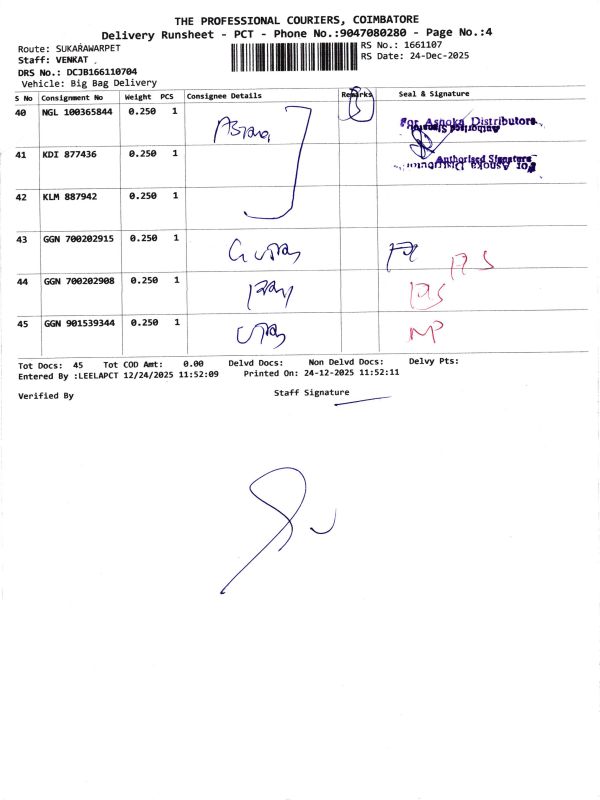 THE PROFESSIONAL COURIERS, COIMBATORE
Delivery Runsheet - PCT - Phone No.:9047080280 - Page No.:4
Route: SUKARAWARPET
RS No.: 1661107
Staff: VENKAT
RS Date: 24-Dec-2025
DRS No.: DCJB166110704
Vehicle: Big Bag Delivery
S No Consignment No Weight PCS Consignee Details Remarks Seal & Signature
40 NGL 100365844 0.250 1
For Asnoka Distributors
41 KDI 877436 0.250 1
Authorised Signature
42 KLM 887942 0.250 1
43 GGN 700202915 0.250 1
44 GGN 700202908 0.250 1
45 GGN 901539344 0.250 1
Tot Docs: 45 Tot COD Amt: 0.00 Delvd Docs: Non Delvd Docs: Delvy Pts:
Entered By :LEELAPCT 12/24/2025 11:52:09 Printed On: 24-12-2025 11:52:11
Verified By Staff Signature